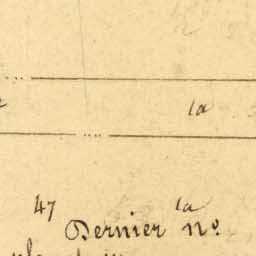 la
47 la
Dernier nº